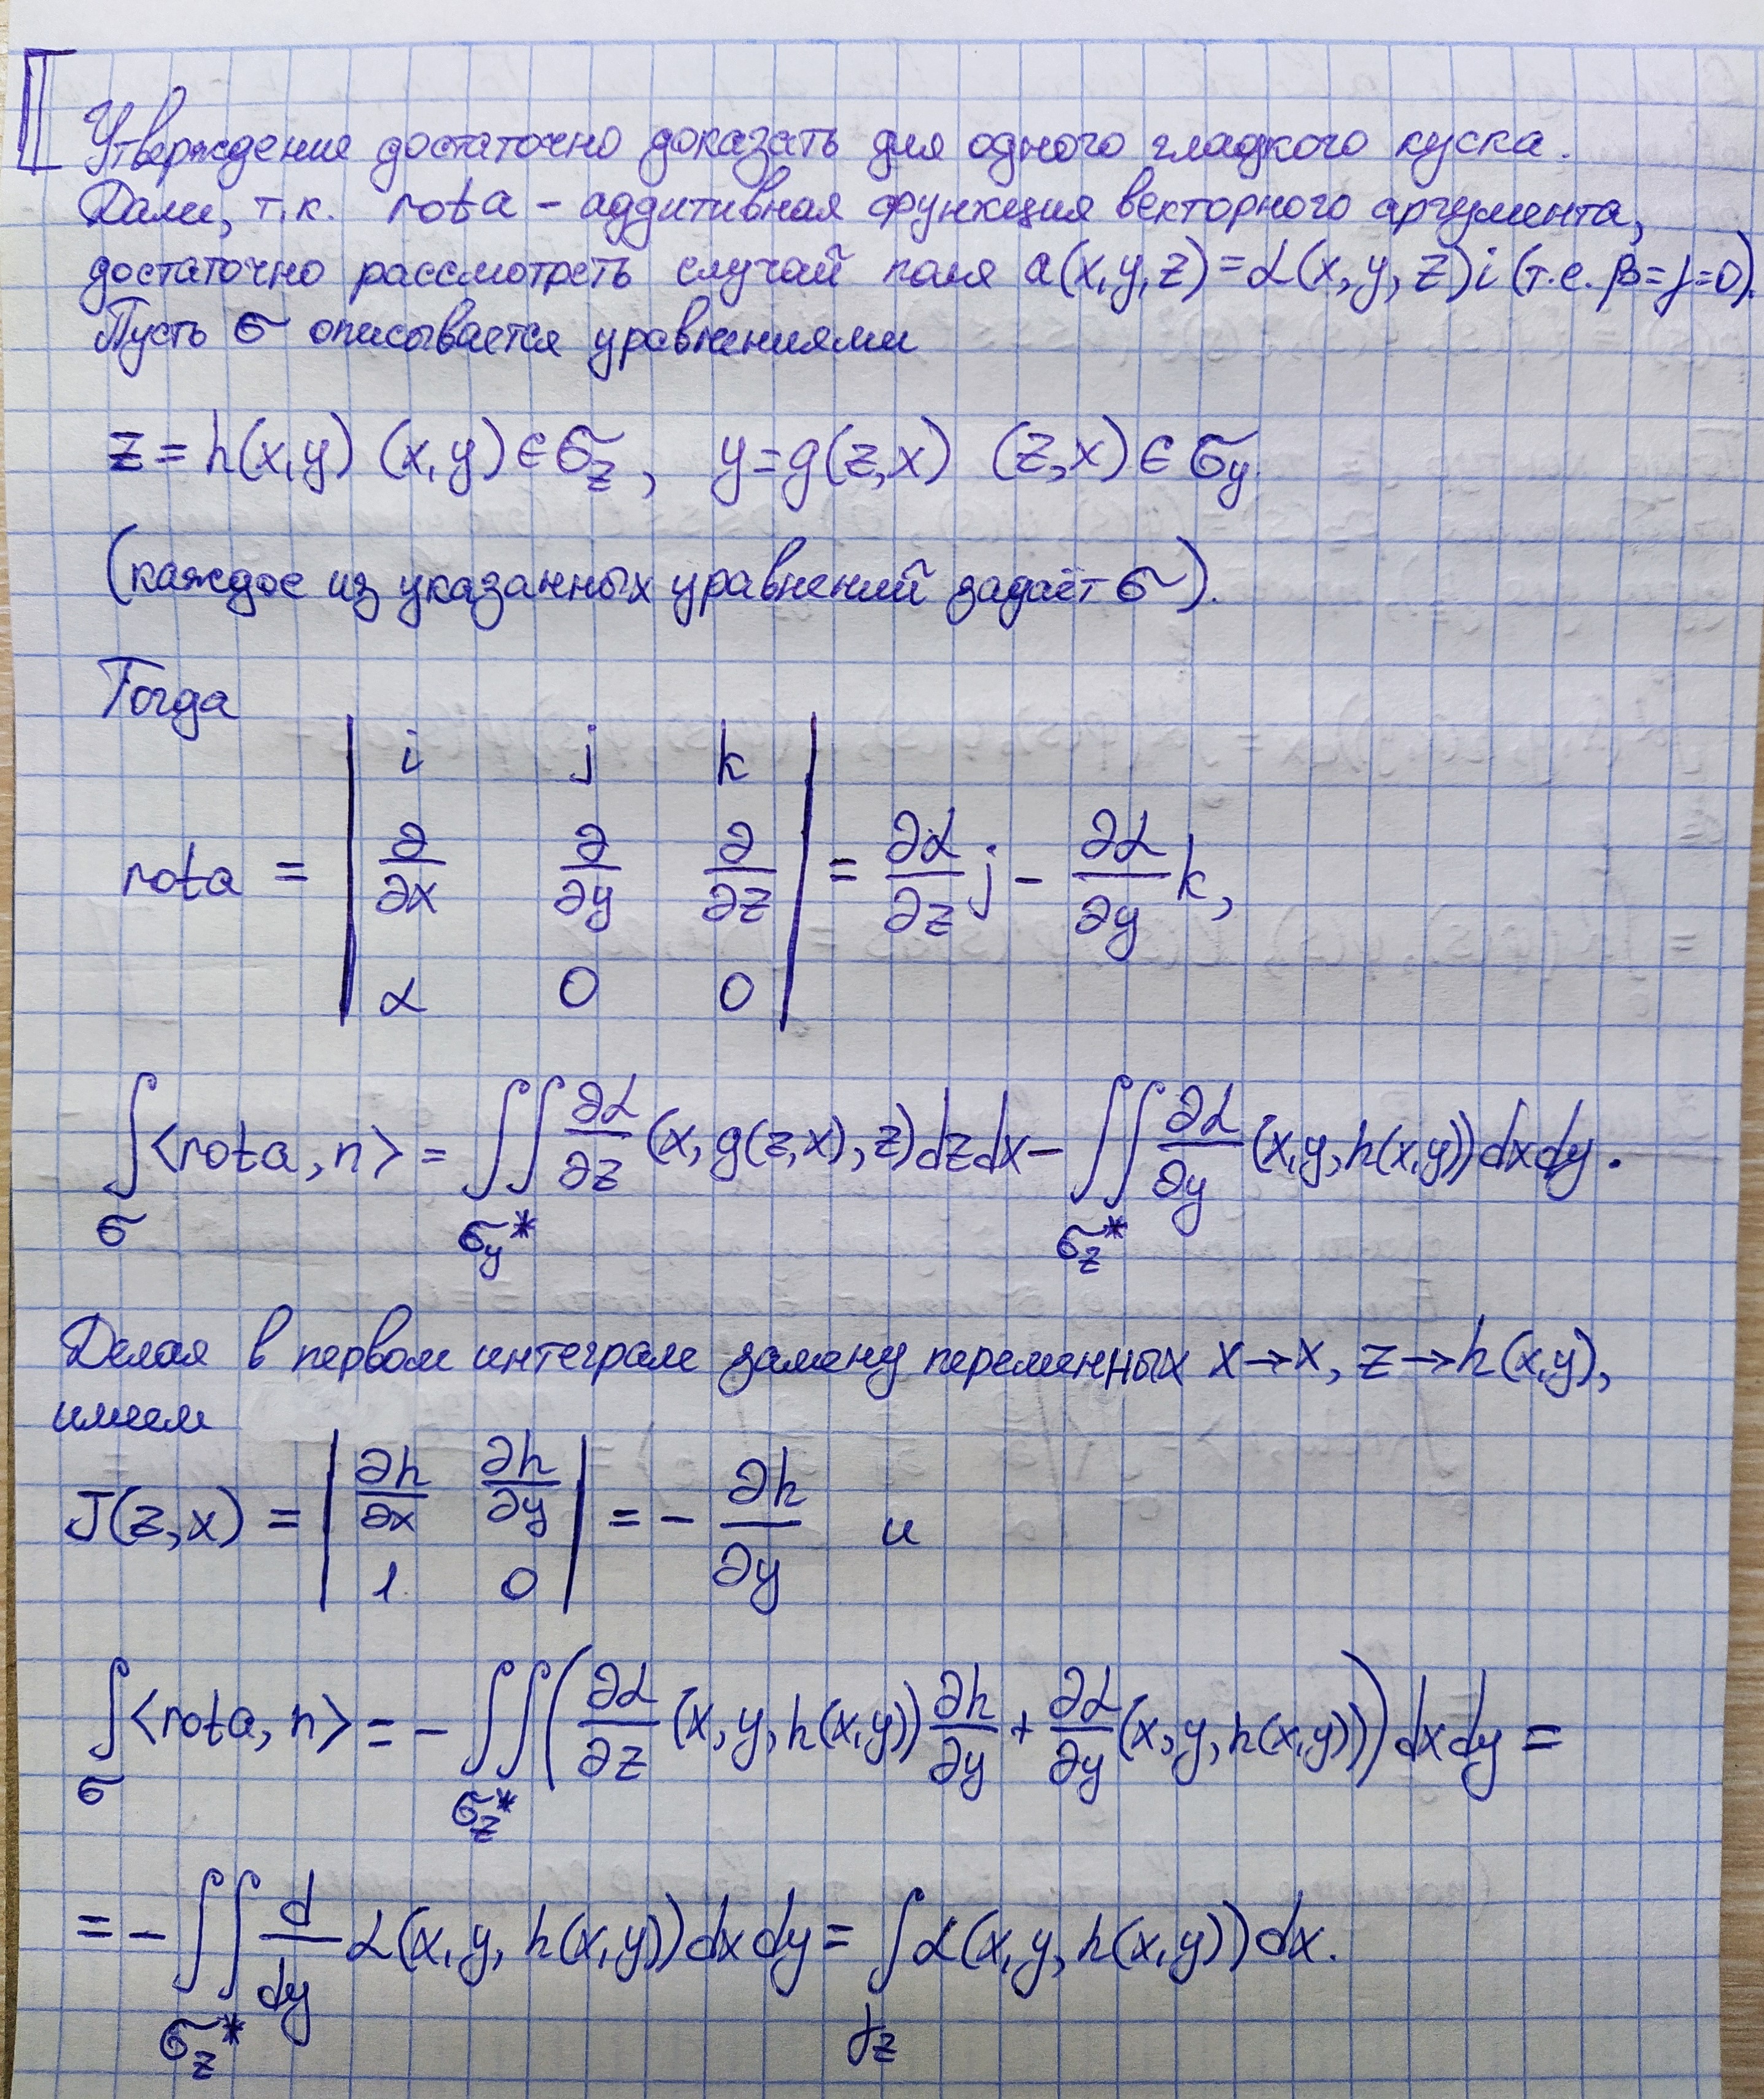 Утверждение достаточно доказать для одного гладкого куска.
Далее, т.к. rot a – аддитивная функция векторного аргумента,
достаточно рассмотреть случай поля a(x,y,z)=α(x,y,z)i (т.е. β=γ=0).
Пусть σ описывается уравнениями
z=h(x,y) (x,y)∈σ_z, y=g(z,x) (z,x)∈σ_y.
(каждое из указанных уравнений задаёт σ).
Тогда
rot a = | i j k ; ∂/∂x ∂/∂y ∂/∂z ; α 0 0 | = ∂α/∂z j - ∂α/∂y k,
∫_σ <rot a, n> = ∬_{σ_y*} ∂α/∂z (x, g(z,x), z) dz dx - ∬_{σ_z*} ∂α/∂y (x,y,h(x,y)) dx dy.
Делая в первом интеграле замену переменных x→x, z→h(x,y),
имеем
J(z,x) = | ∂h/∂x ∂h/∂y ; 1 0 | = - ∂h/∂y и
∫_σ <rot a, n> = - ∬_{σ_z*} (∂α/∂z (x, y, h(x,y)) ∂h/∂y + ∂α/∂y (x, y, h(x,y))) dx dy =
= - ∬_{σ_z*} d/dy α(x, y, h(x,y)) dx dy = ∫_{γ_z} α(x, y, h(x,y)) dx.